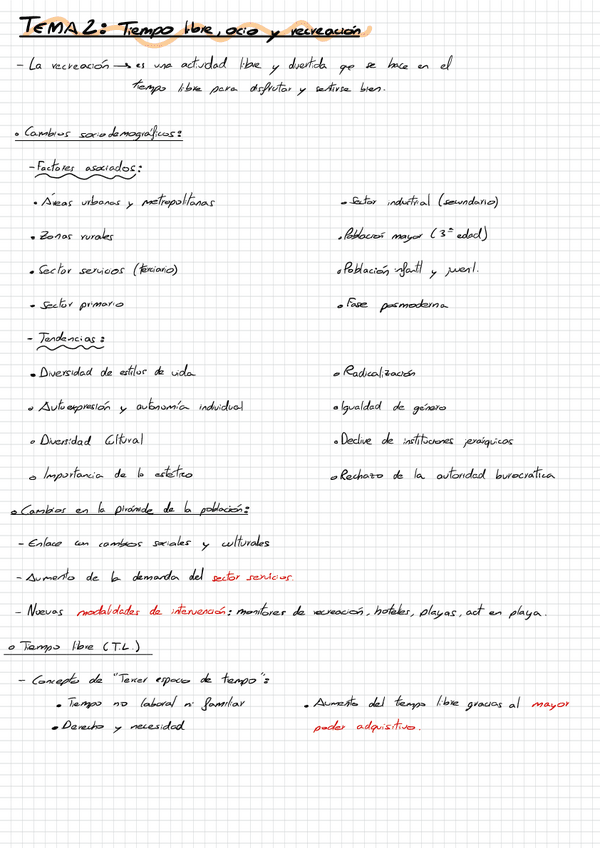 TEMA 2: Tiempo libre, ocio y recreación
- La recreación → es una actividad libre y divertida que se hace en el
tiempo libre para disfrutar y sentirse bien.
• Cambios sociodemográficos:
- Factores asociados:
• Áreas urbanas y metropolitanas
• Sector industrial (secundario)
• Zonas rurales
• Población mayor (3ª edad)
• Sector servicios (terciario)
• Población infantil y juvenil.
• Sector primario
• Fase posmoderna
- Tendencias:
• Diversidad de estilos de vida
• Radicalización
• Autoexpresión y autonomía individual
• Igualdad de género
• Diversidad Cultural
• Declive de instituciones jerárquicas
• Importancia de lo estético
• Rechazo de la autoridad burocrática
• Cambios en la pirámide de la población:
- Enlace con cambios sociales y culturales
- Aumento de la demanda del sector servicios.
- Nuevas modalidades de intervención: monitores de recreación, hoteles, playas, act en playa.
• Tiempo libre (T.L.)
- Concepto de "Tercer espacio de tiempo":
• Tiempo no laboral ni familiar
• Aumento del tiempo libre gracias al mayor
• Derecho y necesidad
poder adquisitivo.